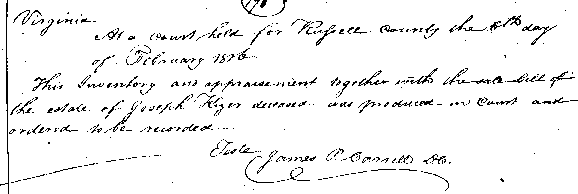 Virginia
At a court held for Russell County the 8th day
of February 1826
This Inventory and appraisement together with the sale bill of
the estate of Joseph Kizer deceased was produced in Court and
ordered to be recorded
Teste
James P. Carrell DC.